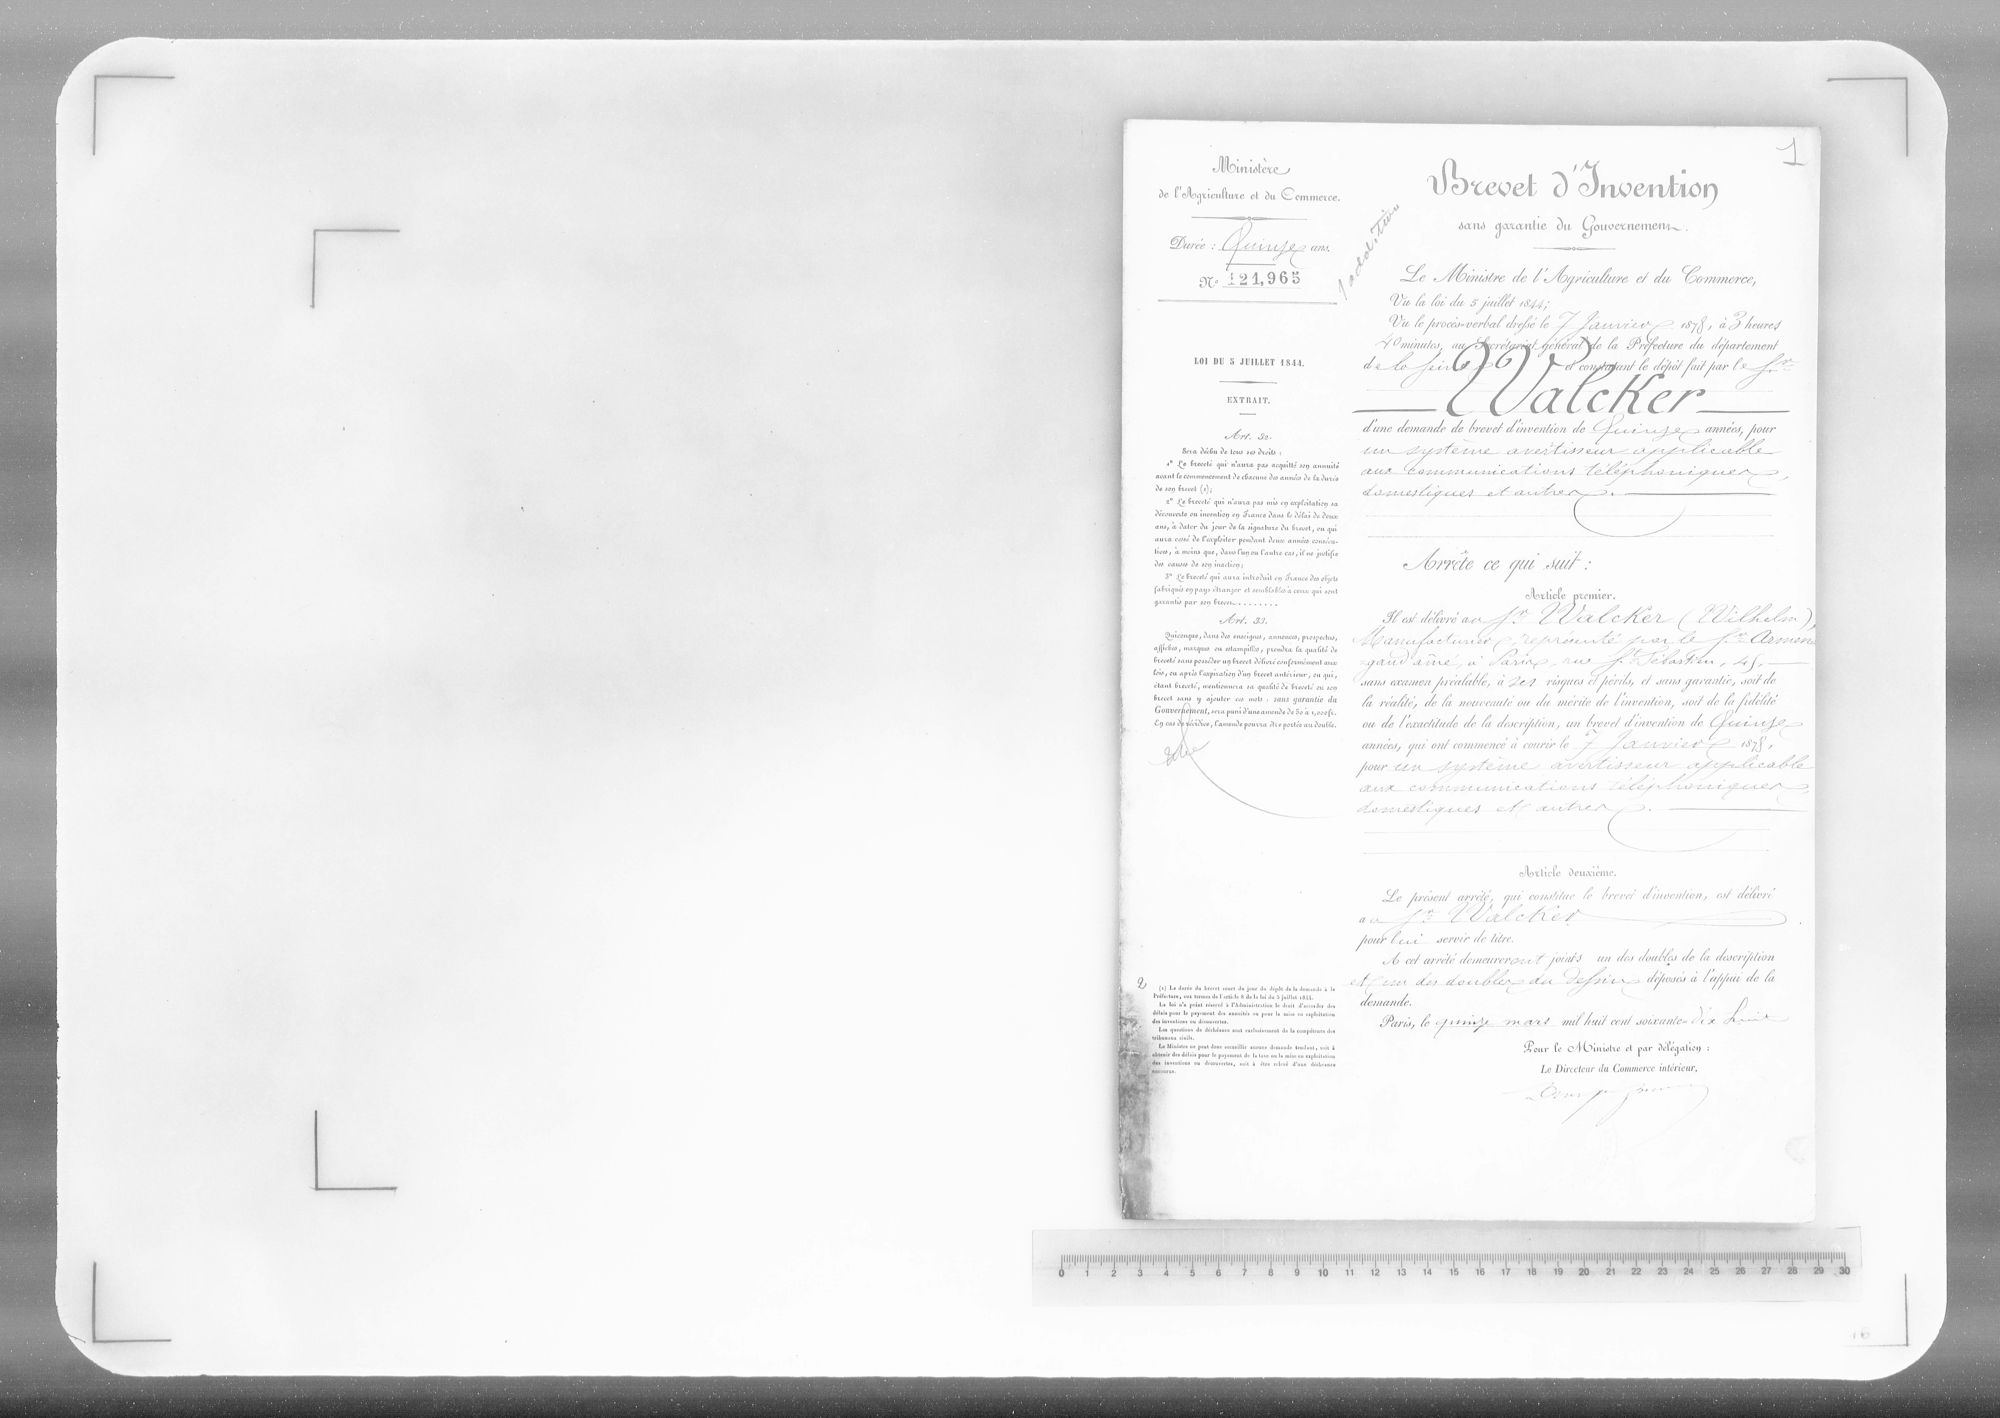 Ministère
de l'Agriculture et du Commerce.
Durée : Quinze ans.
N° 121,965
LOI DU 5 JUILLET 1844.
EXTRAIT.
Art. 32.
Sera déchu de tous ses droits :
1° Le breveté qui n'aura pas acquitté son annuité
avant le commencement de chacune des années de la durée
de son brevet (1);
2° Le breveté qui n'aura pas mis en exploitation sa
découverte ou invention en France dans le délai de deux
ans, à dater du jour de la signature du brevet, ou qui
aura cessé de l'exploiter pendant deux années consécu-
tives, à moins que, dans l'un ou l'autre cas, il ne justifie
des causes de son inaction;
3° Le breveté qui aura introduit en France des objets
fabriqués en pays étranger et semblables à ceux qui sont
garantis par son brevet.........
Art. 33.
Quiconque, dans des enseignes, annonces, prospectus,
affiches, marques ou estampilles, prendra la qualité de
breveté sans posséder un brevet délivré conformément aux
lois, ou après l'expiration d'un brevet antérieur, ou qui,
étant breveté, mentionnera sa qualité de breveté ou son
brevet sans y ajouter ces mots : sans garantie du
Gouvernement, sera puni d'une amende de 50 à 1,000 fr.
En cas de récidive, l'amende pourra être portée au double.
2
(1) La durée du brevet court du jour du dépôt de la demande à la
Préfecture, aux termes de l'article 8 de la loi du 5 juillet 1844.
La loi n'a point réservé à l'Administration le droit d'accorder des
délais pour le payement des annuités ou pour la mise en exploitation
des inventions ou découvertes.
Les questions de déchéance sont exclusivement de la compétence des
tribunaux civils.
Le Ministre ne peut donc accueillir aucune demande tendant, soit à
obtenir des délais pour le payement de la taxe ou la mise en exploitation
des inventions ou découvertes, soit à être relevé d'une déchéance
encourue.
1
1 addition
Brevet d'Invention
sans garantie du Gouvernement.
Le Ministre de l'Agriculture et du Commerce,
Vu la loi du 5 juillet 1844;
Vu le procès-verbal dressé le 7 Janvier 1878, à 3 heures
40 minutes, au Secrétariat général de la Préfecture du département
de la Seine et constatant le dépôt fait par le Sr
Walcker
d'une demande de brevet d'invention de Quinze années, pour
un système avertisseur applicable
aux communications téléphoniques,
domestiques et autres.
Arrête ce qui suit :
Article premier.
Il est délivré au Sr Walcker (Wilhelm),
Manufacturier, représenté par le Sr Armen-
gaud aîné, à Paris, rue St Sébastien, 45,
sans examen préalable, à ses risques et périls, et sans garantie, soit de
la réalité, de la nouveauté ou du mérite de l'invention, soit de la fidélité
ou de l'exactitude de la description, un brevet d'invention de Quinze
années, qui ont commencé à courir le 7 Janvier 1878,
pour un système avertisseur applicable
aux communications téléphoniques,
domestiques et autres.
Article deuxième.
Le présent arrêté, qui constitue le brevet d'invention, est délivré
au Sr Walcker
pour lui servir de titre.
A cet arrêté demeureront joints un des doubles de la description
et un des doubles du dessin déposés à l'appui de la
demande.
Paris, le quinze mars mil huit cent soixante-dix huit
Pour le Ministre et par délégation :
Le Directeur du Commerce intérieur,
0 1 2 3 4 5 6 7 8 9 10 11 12 13 14 15 16 17 18 19 20 21 22 23 24 25 26 27 28 29 30
16